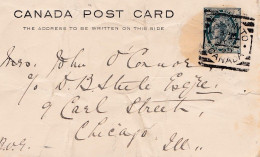 CANADA POST CARD
THE ADDRESS TO BE WRITTEN ON THIS SIDE
Mrs. John O'Connor
c/o D.B. Steele Esqre.
9 Earl Street,
Chicago
Ill.
TO
CANADA